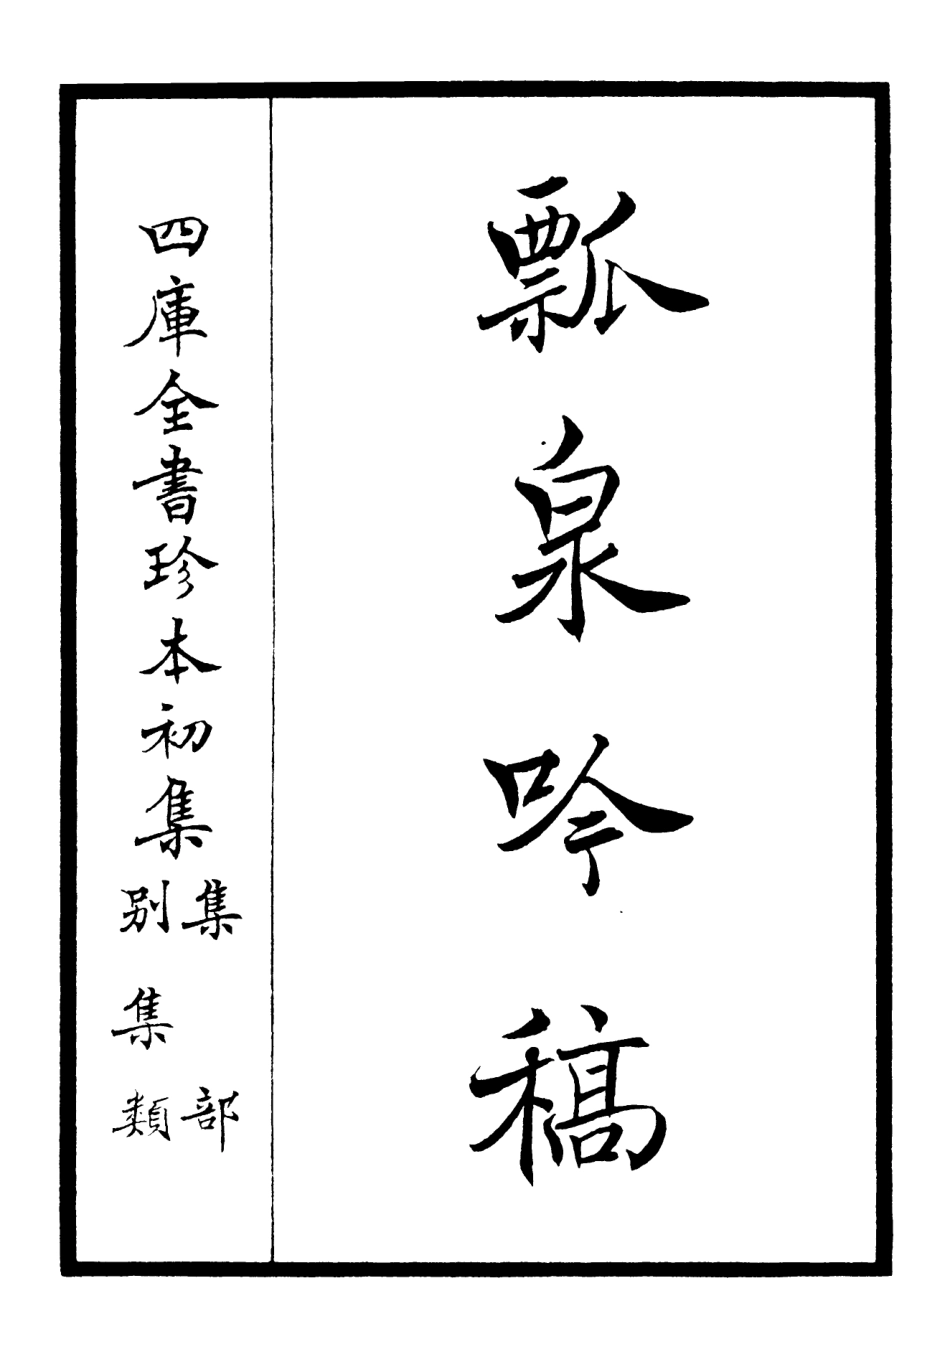 瓢泉吟稿
四庫全書珍本初集
集部
別集類